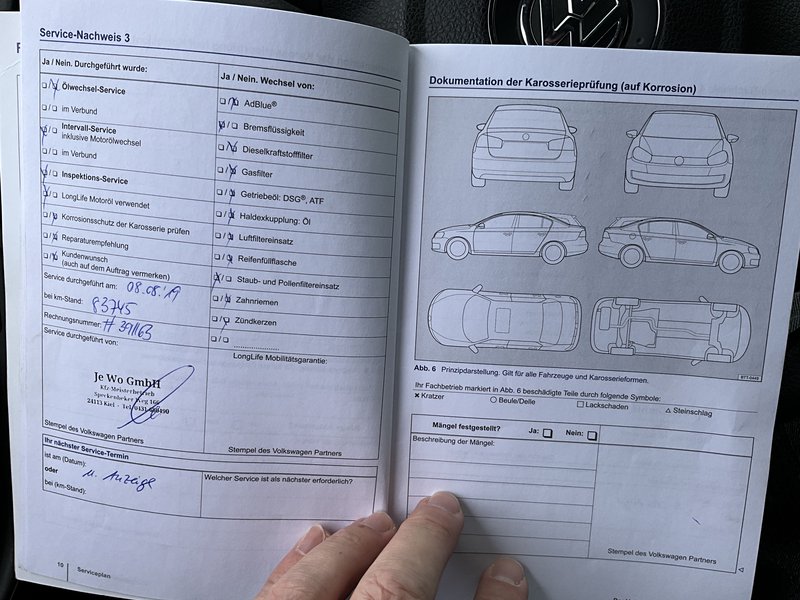 Service-Nachweis 3
Ja / Nein. Durchgeführt wurde:
Ölwechsel-Service
im Verbund
Intervall-Service
inklusive Motorölwechsel
im Verbund
Inspektions-Service
LongLife Motoröl verwendet
Korrosionsschutz der Karosserie prüfen
Reparaturempfehlung
Kundenwunsch
(auch auf dem Auftrag vermerken)
Service durchgeführt am: 08.08.'19
bei km-Stand: 83745
Rechnungsnummer: # 391163
Service durchgeführt von:
Je Wo GmbH
Kfz-Meisterbetrieb
Speckenbeker Weg
24113 Kiel · Tel.
Stempel des Volkswagen Partners
Ihr nächster Service-Termin
ist am (Datum):
oder
bei (km-Stand):
n. Anzeige
10 Serviceplan
Ja / Nein. Wechsel von:
AdBlue®
Bremsflüssigkeit
Dieselkraftstofffilter
Gasfilter
Getriebeöl: DSG®, ATF
Haldexkupplung: Öl
Luftfiltereinsatz
Reifenfüllflasche
Staub- und Pollenfiltereinsatz
Zahnriemen
Zündkerzen
LongLife Mobilitätsgarantie:
Stempel des Volkswagen Partners
Welcher Service ist als nächster erforderlich?
Dokumentation der Karosserieprüfung (auf Korrosion)
Abb. 6 Prinzipdarstellung. Gilt für alle Fahrzeuge und Karosserieformen.
Ihr Fachbetrieb markiert in Abb. 6 beschädigte Teile durch folgende Symbole:
Kratzer
Beule/Delle
Lackschaden
Steinschlag
Mängel festgestellt? Ja: Nein:
Beschreibung der Mängel:
Stempel des Volkswagen Partners